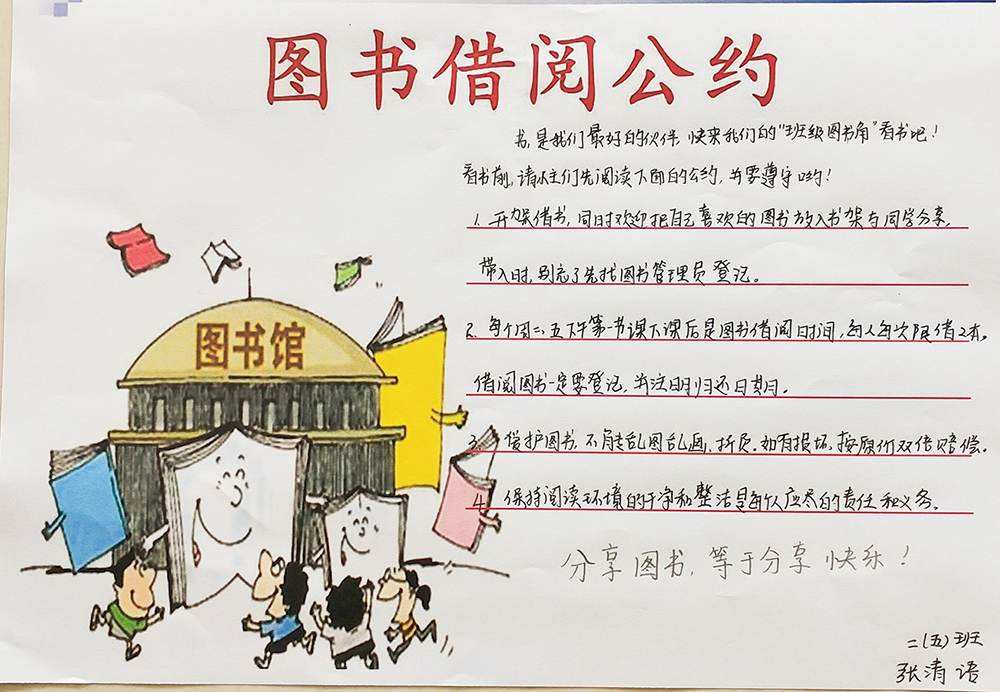 图书借阅公约
书,是我们最好的伙伴,快来我们的“班级图书角”看书吧!
看书前,请小主们先阅读下面的公约,并要遵守哟!
1. 开架借书,同时欢迎把自己喜欢的图书放入书架与同学分享,
带入时,别忘了先找图书管理员登记。
2. 每个周二、五下午第一节课下课后是图书借阅时间,每人每次限借2本。
借阅图书一定要登记,并注明归还日期。
3. 爱护图书,不能乱图乱画、折页。如有损坏,按原价双倍赔偿。
4. 保持阅读环境的干净和整洁是每个人应尽的责任和义务。
分享图书,等于分享快乐!
二(五)班
张清语
图书馆